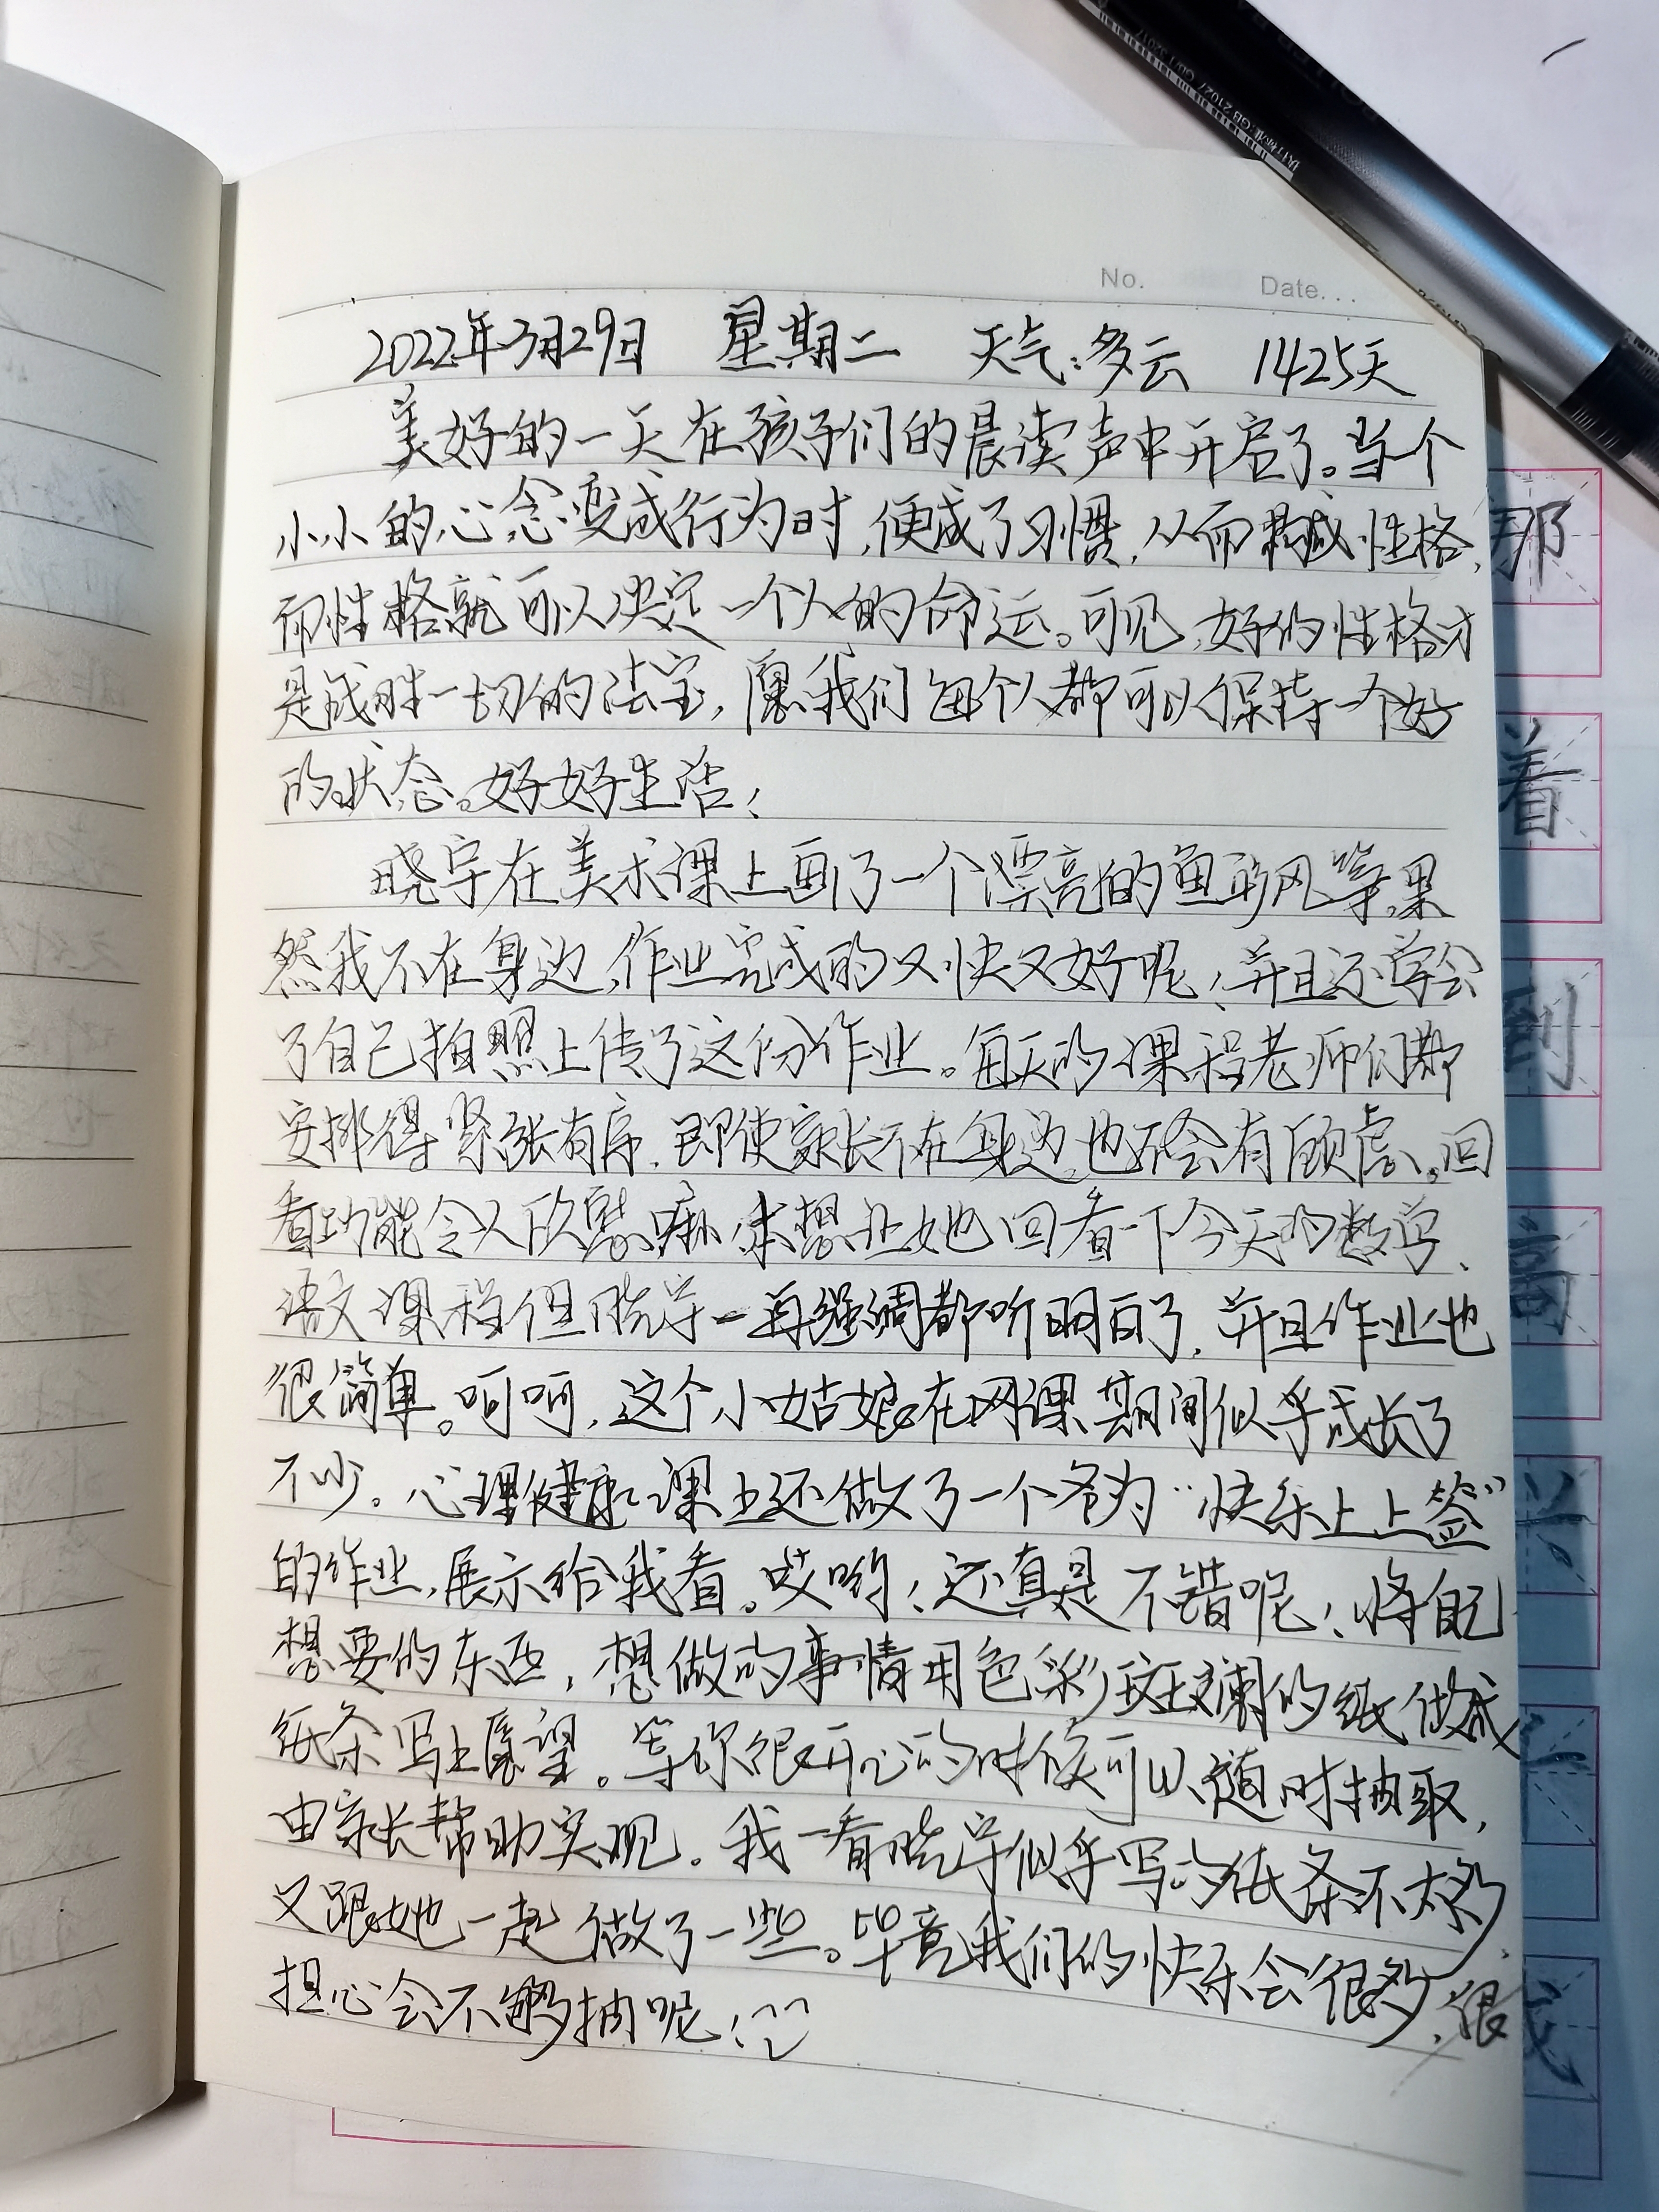 No. Date...
2022年3月29日 星期二 天气:多云 1425天
美好的一天在孩子们的晨读声中开启了。当个
小小的心念变成行为时,便成了习惯,从而构成性格,
而性格就可以决定一个人的命运。可见,好的性格才
是战胜一切的法宝,愿我们每个人都可以保持一个好
的状态。好好生活!
晓宇在美术课上画了一个漂亮的鱼形风筝,果
然我不在身边,作业完成的又快又好呢!并且还学会
了自己拍照上传了这份作业。每天的课程老师们都
安排得紧张有序,即使家长不在身边,也不会有顾虑。回
看功能令人欣慰嘛,本想让她回看一下今天的数学、
语文课程但晓宇一再强调都听明白了,并且作业也
很简单。呵呵,这个小姑娘在网课期间似乎成长了
不少。心理健康课上还做了一个名为“快乐上上签”
的作业,展示给我看。哎哟!还真是不错呢!将自己
想要的东西,想做的事情用色彩斑斓的纸做成
纸条写上愿望。等你很开心的时候可以随时抽取,
由家长帮助实现。我一看晓宇似乎写的纸条不太多,
又跟她一起做了一些。毕竟我们的快乐会很多,很
担心会不够抽呢!
执行标准:GB 21027 QB/T 32017
那
着
到